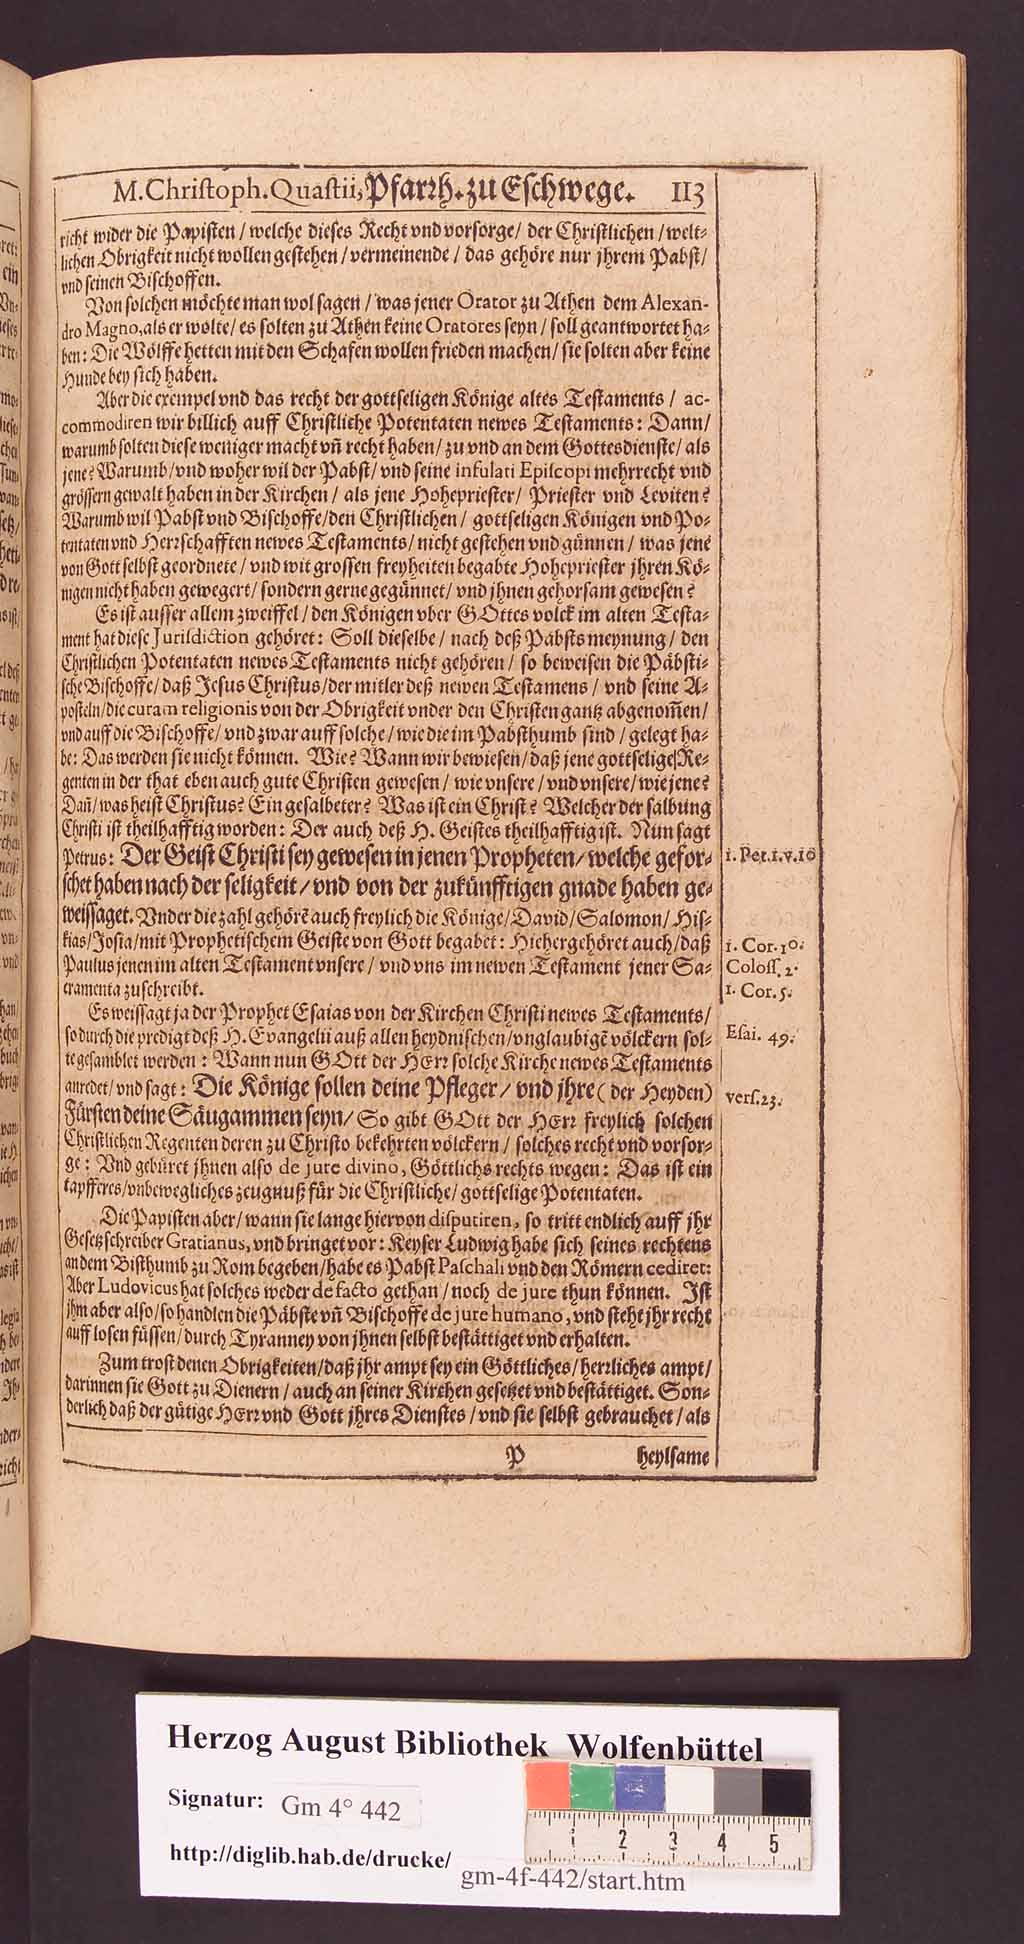 M. Christoph. Quastii, Pfarrh. zu Eschwege. 113
richt wider die Papisten / welche dieses Recht vnd vorsorge / der Christlichen / welt-
lichen Obrigkeit nicht wollen gestehen / vermeinende / das gehöre nur jhrem Pabst /
vnd seinen Bischoffen.
Von solchen möchte man wol sagen / was jener Orator zu Athen dem Alexan-
dro Magno, als er wolte / es solten zu Athen keine Oratores seyn / soll geantwortet ha-
ben: Die Wölffe hetten mit den Schafen wollen frieden machen / sie solten aber keine
Hunde bey sich haben.
Aber die exempel vnd das recht der gottseligen Könige altes Testaments / ac-
commodiren wir billich auff Christliche Potentaten newes Testaments: Dann /
warumb solten diese weniger macht vñ recht haben / zu vnd an dem Gottesdienste / als
jene? Warumb / vnd woher wil der Pabst / vnd seine infulati Episcopi mehr recht vnd
grössern gewalt haben in der Kirchen / als jene Hohepriester / Priester vnd Leviten?
Warumb wil Pabst vnd Bischoffe / den Christlichen / gottseligen Königen vnd Po-
tentaten vnd Herrschafften newes Testaments / nicht gestehen vnd günnen / was jene
von Gott selbst geordnete / vnd wit grossen freyheiten begabte Hohepriester jhren Kö-
nigen nicht haben gewegert / sondern gerne gegünnet / vnd jhnen gehorsam gewesen?
Es ist ausser allem zweiffel / den Königen vber GOttes volck im alten Testa-
ment hat diese Jurisdiction gehöret: Soll dieselbe / nach deß Pabsts meynung / den
Christlichen Potentaten newes Testaments nicht gehören / so beweisen die Päbsti-
sche Bischoffe / daß Jesus Christus / der mitler deß newen Testamens / vnd seine A-
posteln / die curam religionis von der Obrigkeit vnder den Christen gantz abgenom̃en /
vnd auff die Bischoffe / vnd zwar auff solche / wie die im Pabsthumb sind / gelegt ha-
be: Das werden sie nicht können. Wie? Wann wir bewiesen / daß jene gottselige Re-
genten in der that eben auch gute Christen gewesen / wie vnsere / vnd vnsere / wie jene?
Dañ / was heist Christus? Ein gesalbeter? Was ist ein Christ? Welcher der salbung
Christi ist theilhafftig worden: Der auch deß H. Geistes theilhafftig ist. Nun sagt
Petrus: Der Geist Christi sey gewesen in jenen Propheten / welche gefor-
schet haben nach der seligkeit / vnd von der zukünfftigen gnade haben ge-
weissaget. Vnder die zahl gehörẽ auch freylich die Könige / David / Salomon / His-
kias / Josia / mit Prophetischem Geiste von Gott begabet: Hieher gehöret auch / daß
Paulus jenen im alten Testament vnsere / vnd vns im newen Testament jener Sa-
cramenta zuschreibt.
Es weissagt ja der Prophet Esaias von der Kirchen Christi newes Testaments /
so durch die predigt deß H. Evangelii auß allen heydnischen / vnglaubigẽ völckern sol-
te gesamblet werden: Wann nun GOtt der HErr solche Kirche newes Testaments
anredet / vnd sagt: Die Könige sollen deine Pfleger / vnd jhre ( der Heyden)
Fürsten deine Säugammen seyn / So gibt GOtt der HErr freylich solchen
Christlichen Regenten deren zu Christo bekehrten völckern / solches recht vnd vorsor-
ge: Vnd gebüret jhnen also de jure divino, Göttlichs rechts wegen: Das ist ein
tapfferes / vnbewegliches zeugnuß für die Christliche / gottselige Potentaten.
Die Papisten aber / wann sie lange hiervon disputiren, so tritt endlich auff jhr
Gesetzschreiber Gratianus, vnd bringet vor: Keyser Ludwig habe sich seines rechtens
an dem Bisthumb zu Rom begeben / habe es Pabst Paschali vnd den Römern cediret:
Aber Ludovicus hat solches weder de facto gethan / noch de jure thun können. Ist
jhm aber also / so handlen die Päbste vñ Bischoffe de jure humano, vnd steht jhr recht
auff losen füssen / durch Tyranney von jhnen selbst bestättiget vnd erhalten.
Zum trost denen Obrigkeiten / daß jhr ampt sey ein Göttliches / herrliches ampt /
darinnen sie Gott zu Dienern / auch an seiner Kirchen gesetzet vnd bestättiget. Son-
derlich daß der gütige HErr vnd Gott jhres Dienstes / vnd sie selbst gebrauchet / als
P heylsame
1. Pet. 1. v. 10
1. Cor. 10.
Coloss. 2.
1. Cor. 5.
Esai. 49.
vers. 23.
Herzog August Bibliothek Wolfenbüttel
Signatur: Gm 4° 442
http://diglib.hab.de/drucke/
gm-4f-442/start.htm
1 2 3 4 5